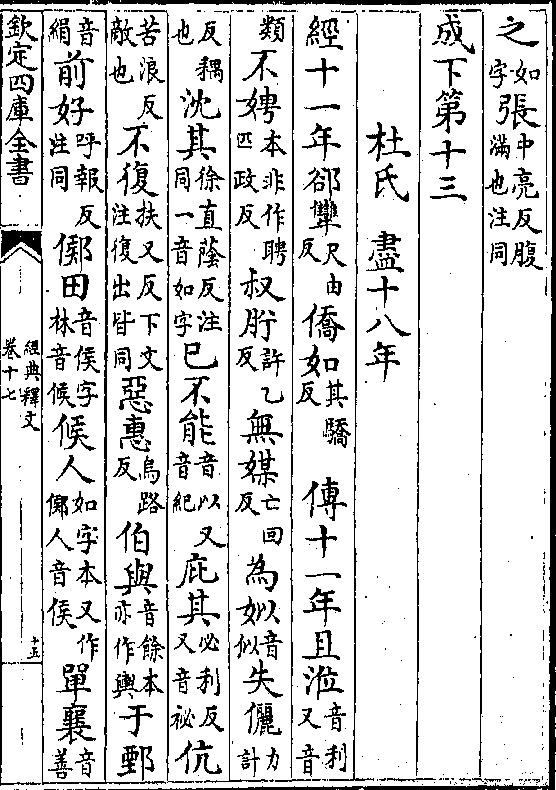 之如字張中亮反腹滿也注同
成下第十三
杜氏　盡十八年
經十一年郤犫尺由反僑如其驕反　傳十一年且涖音利又音
類不娉本非作聘匹政反叔肸許乙反無媒亡回反為姒音似失儷力計
反耦也沈其徐直蔭反注同一音如字已不能音以又音紀庇其必利反又音祕伉
苦浪反敵也不復扶又反下文注復出皆同惡惠烏路反伯與音餘本亦作輿于鄄
音絹前好呼報反注同鄇田音侯字林音候候人如字本又作鄇人音侯單襄音善
欽定四庫全書
經典釋文
卷十七
十五